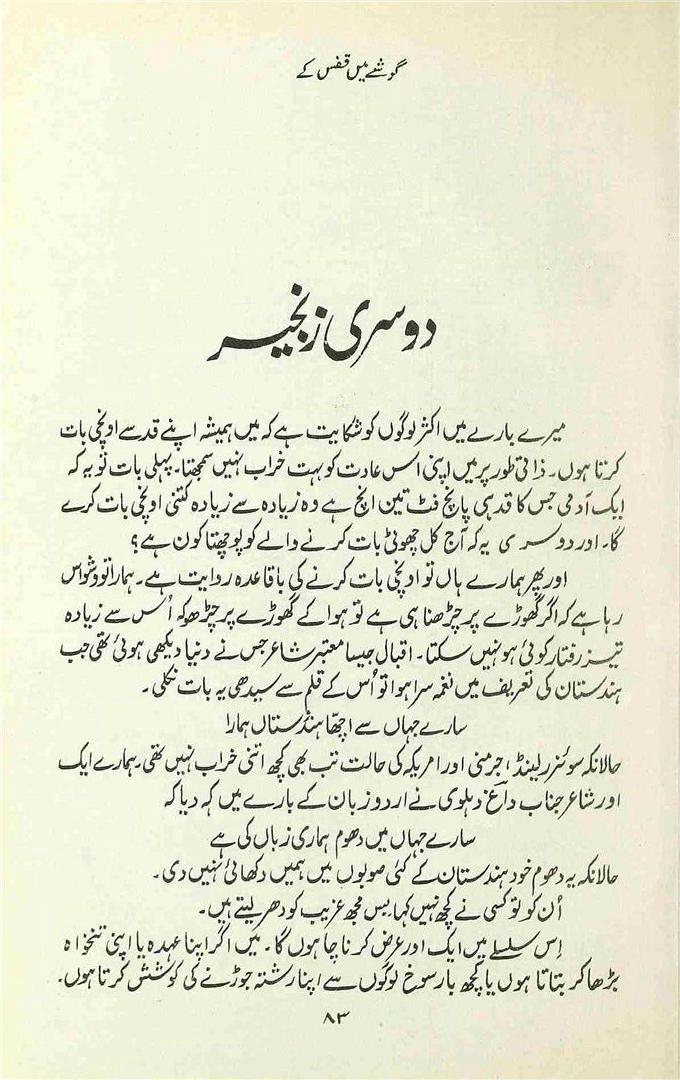 گوشے میں قفس کے
دوسری زنجیر
میرے بارے میں اکثر لوگوں کو شکایت ہے کہ میں ہمیشہ اپنے قد سے اونچی بات
کرتا ہوں۔ ذاتی طور پر میں اپنی اس عادت کو بہت خراب نہیں سمجھتا۔ پہلی بات تو یہ کہ
ایک آدمی جس کا قد ہی پانچ فٹ تین انچ ہے وہ زیادہ سے زیادہ کتنی اونچی بات کرے
گا۔ اور دوسری یہ کہ آج کل چھوٹی بات کرنے والے کو پوچھتا کون ہے؟
اور پھر ہمارے ہاں تو اونچی بات کرنے کی باقاعدہ روایت ہے۔ ہمارا تو وشواس
رہا ہے کہ اگر گھوڑے پر چڑھنا ہی ہے تو ہوا کے گھوڑے پر چڑھو کہ اُس سے زیادہ
تیز رفتار کوئی ہو نہیں سکتا۔ اقبال جیسا معتبر شاعر جس نے دنیا دیکھی ہوئی تھی جب
ہندستان کی تعریف میں نغمہ سرا ہوا تو اُس کے قلم سے سیدھی یہ بات نکلی۔
سارے جہاں سے اچھّا ہندستاں ہمارا
حالانکہ سوئزرلینڈ، جرمنی اور امریکہ کی حالت تب بھی کچھ اتنی خراب نہیں تھی۔ ہمارے ایک
اور شاعر جناب داغؔ دہلوی نے اردو زبان کے بارے میں کہہ دیا کہ
سارے جہاں میں دھوم ہماری زباں کی ہے
حالانکہ یہ دھوم خود ہندستان کے کئی صوبوں میں ہمیں دکھائی نہیں دی۔
اُن کو تو کسی نے کچھ نہیں کہا بس مجھ غریب کو دھر لیتے ہیں۔
اِس سلسلے میں ایک اور عرض کرنا چاہوں گا۔ میں اگر اپنا عہدہ یا اپنی تنخواہ
بڑھا کر بتاتا ہوں یا کچھ بارسوخ لوگوں سے اپنا رشتہ جوڑنے کی کوشش کرتا ہوں۔
۸۳